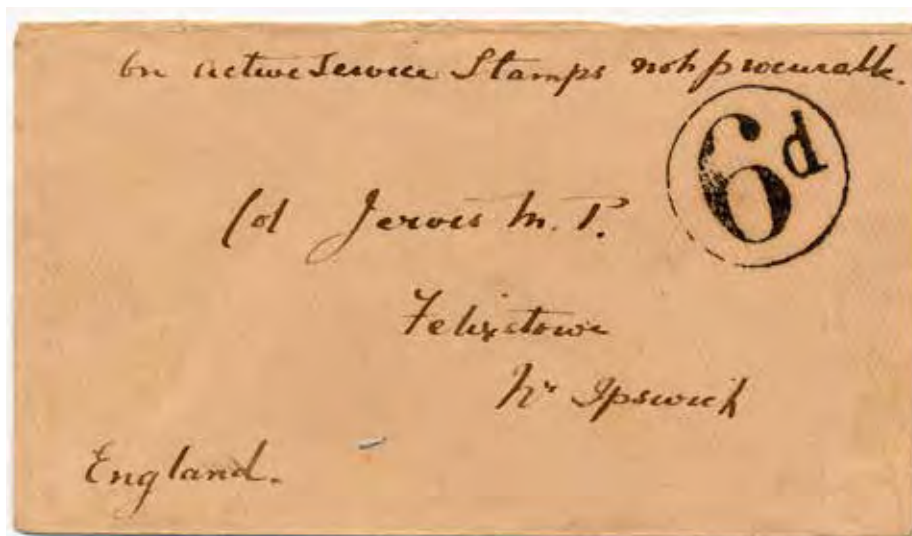 On active Service Stamps not procurable.
6d
Col Jervis M. P.
Felixstowe
Nr Ipswich
England.